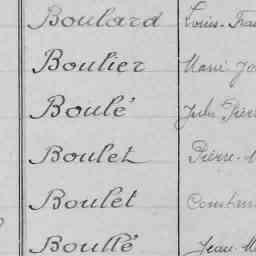 Boulard Louis-
Boulier Marie
Boulé Jules Pierre
Boulet Pierre-
Boulet
Boullé Jean-M